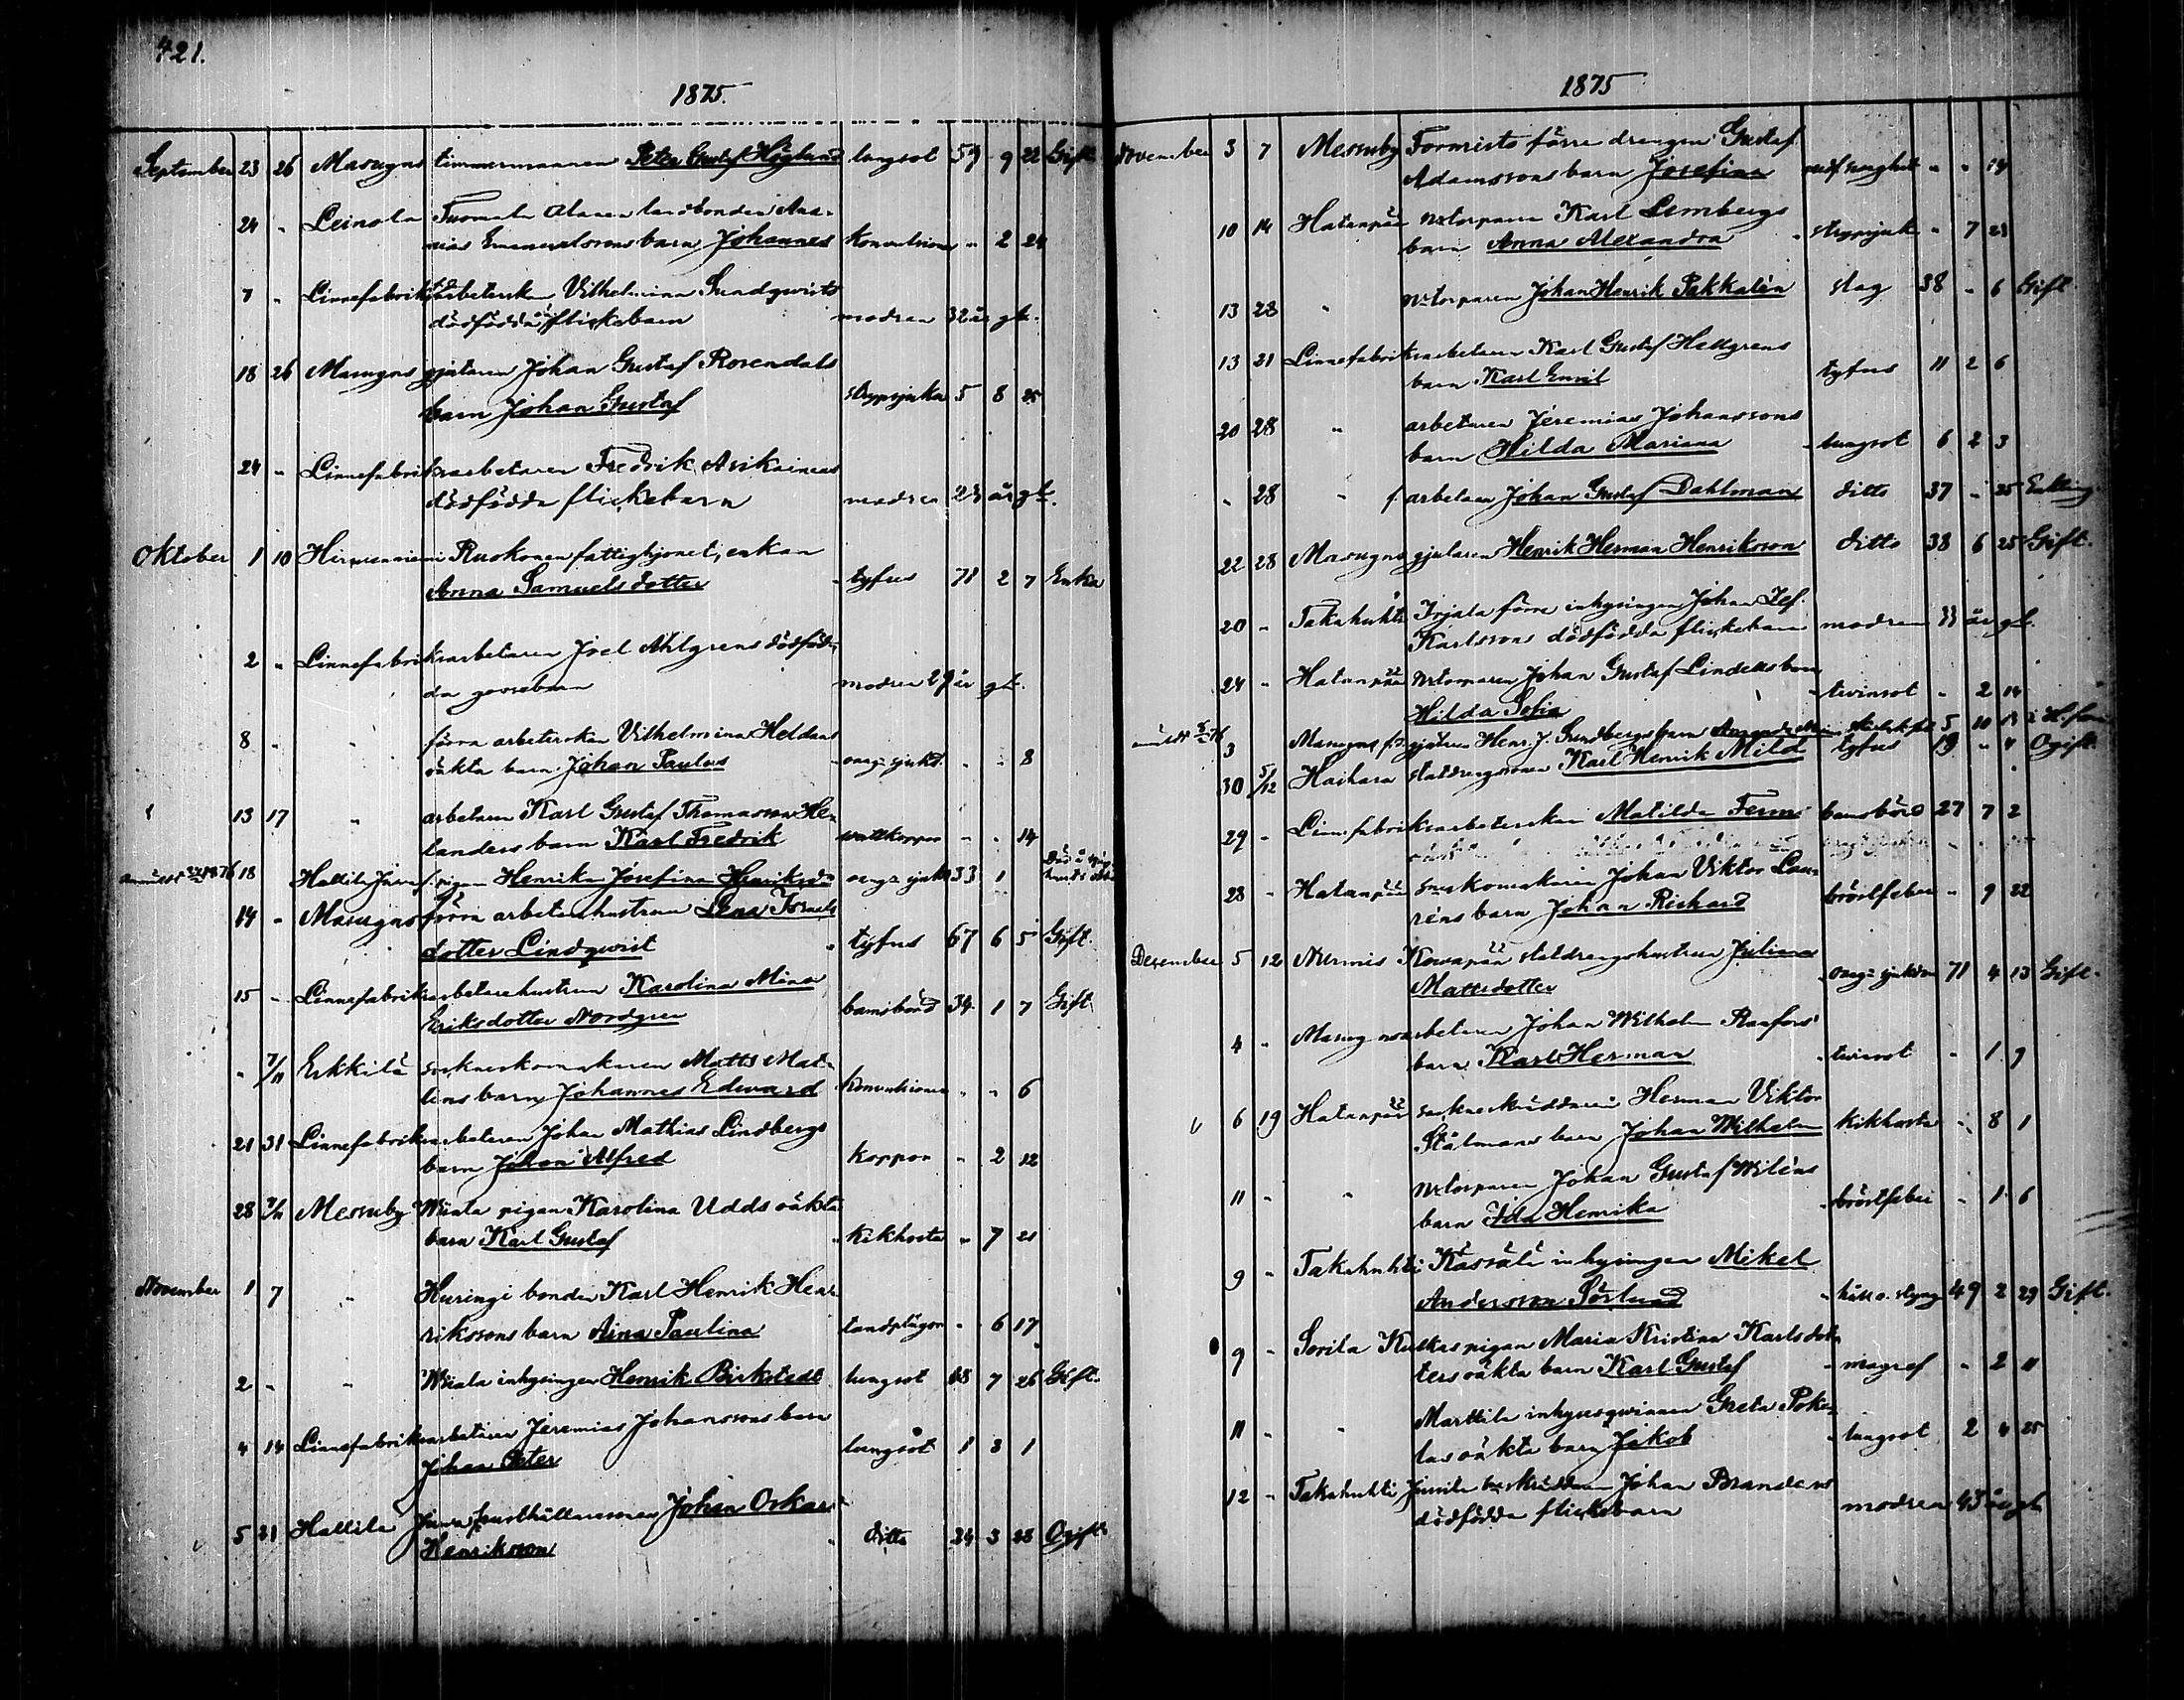 421.
1875.
September 23 26 Masugns timmermannen Peter Gustaf Höglund lungsot 59 9 22 Gift
24 " Leinola Tuomala landbonden Ana-
nias Emanuelssons barn Johannes Konvulsioner " 2 24
7 " Linnefabriks arbeterskan Vilhelmina Sundqvists
dödfödda flickebarn modren 32 år gl.
18 26 Masugns gjutaren Johan Gustaf Rosendals
barn Johan Gustaf strypsjuka 5 8 25
24 " Linnefabriksarbetaren Fredrik Asikainens
dödfödda flickebarn modren 23 år gl.
Oktober 1 10 Ruskonen fattighjonet, enkan
Anna Samuelsdotter tyfus 71 2 7 Enka
2 " Linnefabriksarbetaren Joel Ahlgrens dödföd-
da gossebarn modren 29 år gl.
8 " " förra arbeterskan Vilhelmina Heldans
oäkta barn Johan Paulus 8
13 17 " arbetaren Karl Gustaf Thomasson He-
landers barn Karl Fredrik wattkoppor " " 14
18 Hallila pigan Henrika Josefina Henriksdr 33 1
14 " Masugns förra arbetarehustrun Lena
dotter Lindqwist tyfus 67 6 5 Gift.
15 " Linnefabriksarbetarehustrun Karolina Mina
Eriksdotter Nordgren barnsbörd 34 1 7 Gift
" 7/11 Erkkilä sockneskomakaren Matts Mat-
lins barn Johannes Edward Konvulsioner " " 6
21 31 Linnefabriksarbetaren Johan Mathias Lindbergs
barn Johan Alfred koppor " 2 12
28 7/11 Messuby Wiiala pigan Karolina Udds oäkta
barn Karl Gustaf Kikhosta " 7 21
November 1 7 " Huringi bonden Karl Henrik Hen-
rikssons barn Aina Paulina tandplågor " 6 17
2 " " Wiiala inhysingen Henrik Birkstedt lungsot 68 7 26 Gift.
4 14 Linnefabriksarbetaren Jeremias Johanssons barn
Johan Peter lungsot 1 3 1
5 21 Hallila Johan Oskar
Henriksson ditto 24 3 28 Ogift
1875
November 3 7 Messuby Formisto förre drengen Gustaf
Adamssons barn Josefina " " 14
10 14 Hatanpää torparen Karl Lembergs
barn Anna Alexandra strypsjuk " 7 23
13 28 " torparen Johan Henrik Pakkalén slag 38 " 6 Gift
13 21 Linnefabriksarbetaren Karl Gustaf Hallgrens
barn Karl Emil tyfus 11 2 6
20 28 " arbetaren Jeremias Johanssons
barn Hilda Mariana lungsot 6 2 3
" 28 " f. arbetaren Johan Gustaf Dahlman ditto 37 " 25 Enkling
22 28 Masugns gjutaren Henrik Herman Henriksson ditto 38 6 25 Gift.
20 " Takahuhti Irjala förre inhysingen Johan
Karlssons dödfödda flickebarn modren 33 år gl.
24 " Hatanpää torparen Johan Gustaf Lindells barn
Hilda Sofia twinsot " 2 14
3 Masugns gjutaren Henr. J. Sundbergs barn 5 10 13
30 5/12 Haihara statdrengssonen Karl Henrik Mild tyfus 19 " 4 Ogift
29 " Linnefabriksarbeterskan Matilda Ferms barnsbörd 27 7 2
28 " Hatanpää skomakaren Johan Viktor Lau-
réns barn Johan Richard bröstfeber " 9 22
December 5 12 Nurmis Kowapää statdrengshustrun Juliana
Mattsdotter 71 4 13 Gift.
4 " Masugnsarbetaren Johan Wilhelm Ranfors
barn Karl Herman twinsot " 1 9
6 19 Hatanpää sockneskräddaren Herman Viktor
Stålmans barn Johan Wilhelm Kikhosta " 8 1
11 " " torparen Johan Gustaf Wiléns
barn Ida Henrika bröstfeber " 1 6
9 " Takahuhti Kässälä inhysingen Mikel
Andersson Sörlund håll o. styng 49 2 29 Gift.
9 " Sorila Kulkas pigan Maria Kristina Karlsdot-
ters oäkta barn Karl Gustaf magref " 2 11
11 " " Marttila inhysesqwinnan Greta Poke-
las oäkta barn Jakob lungsot 2 4 25
12 " Takahuhti Johan Branders
dödfödda flickebarn modren 43 år gl.